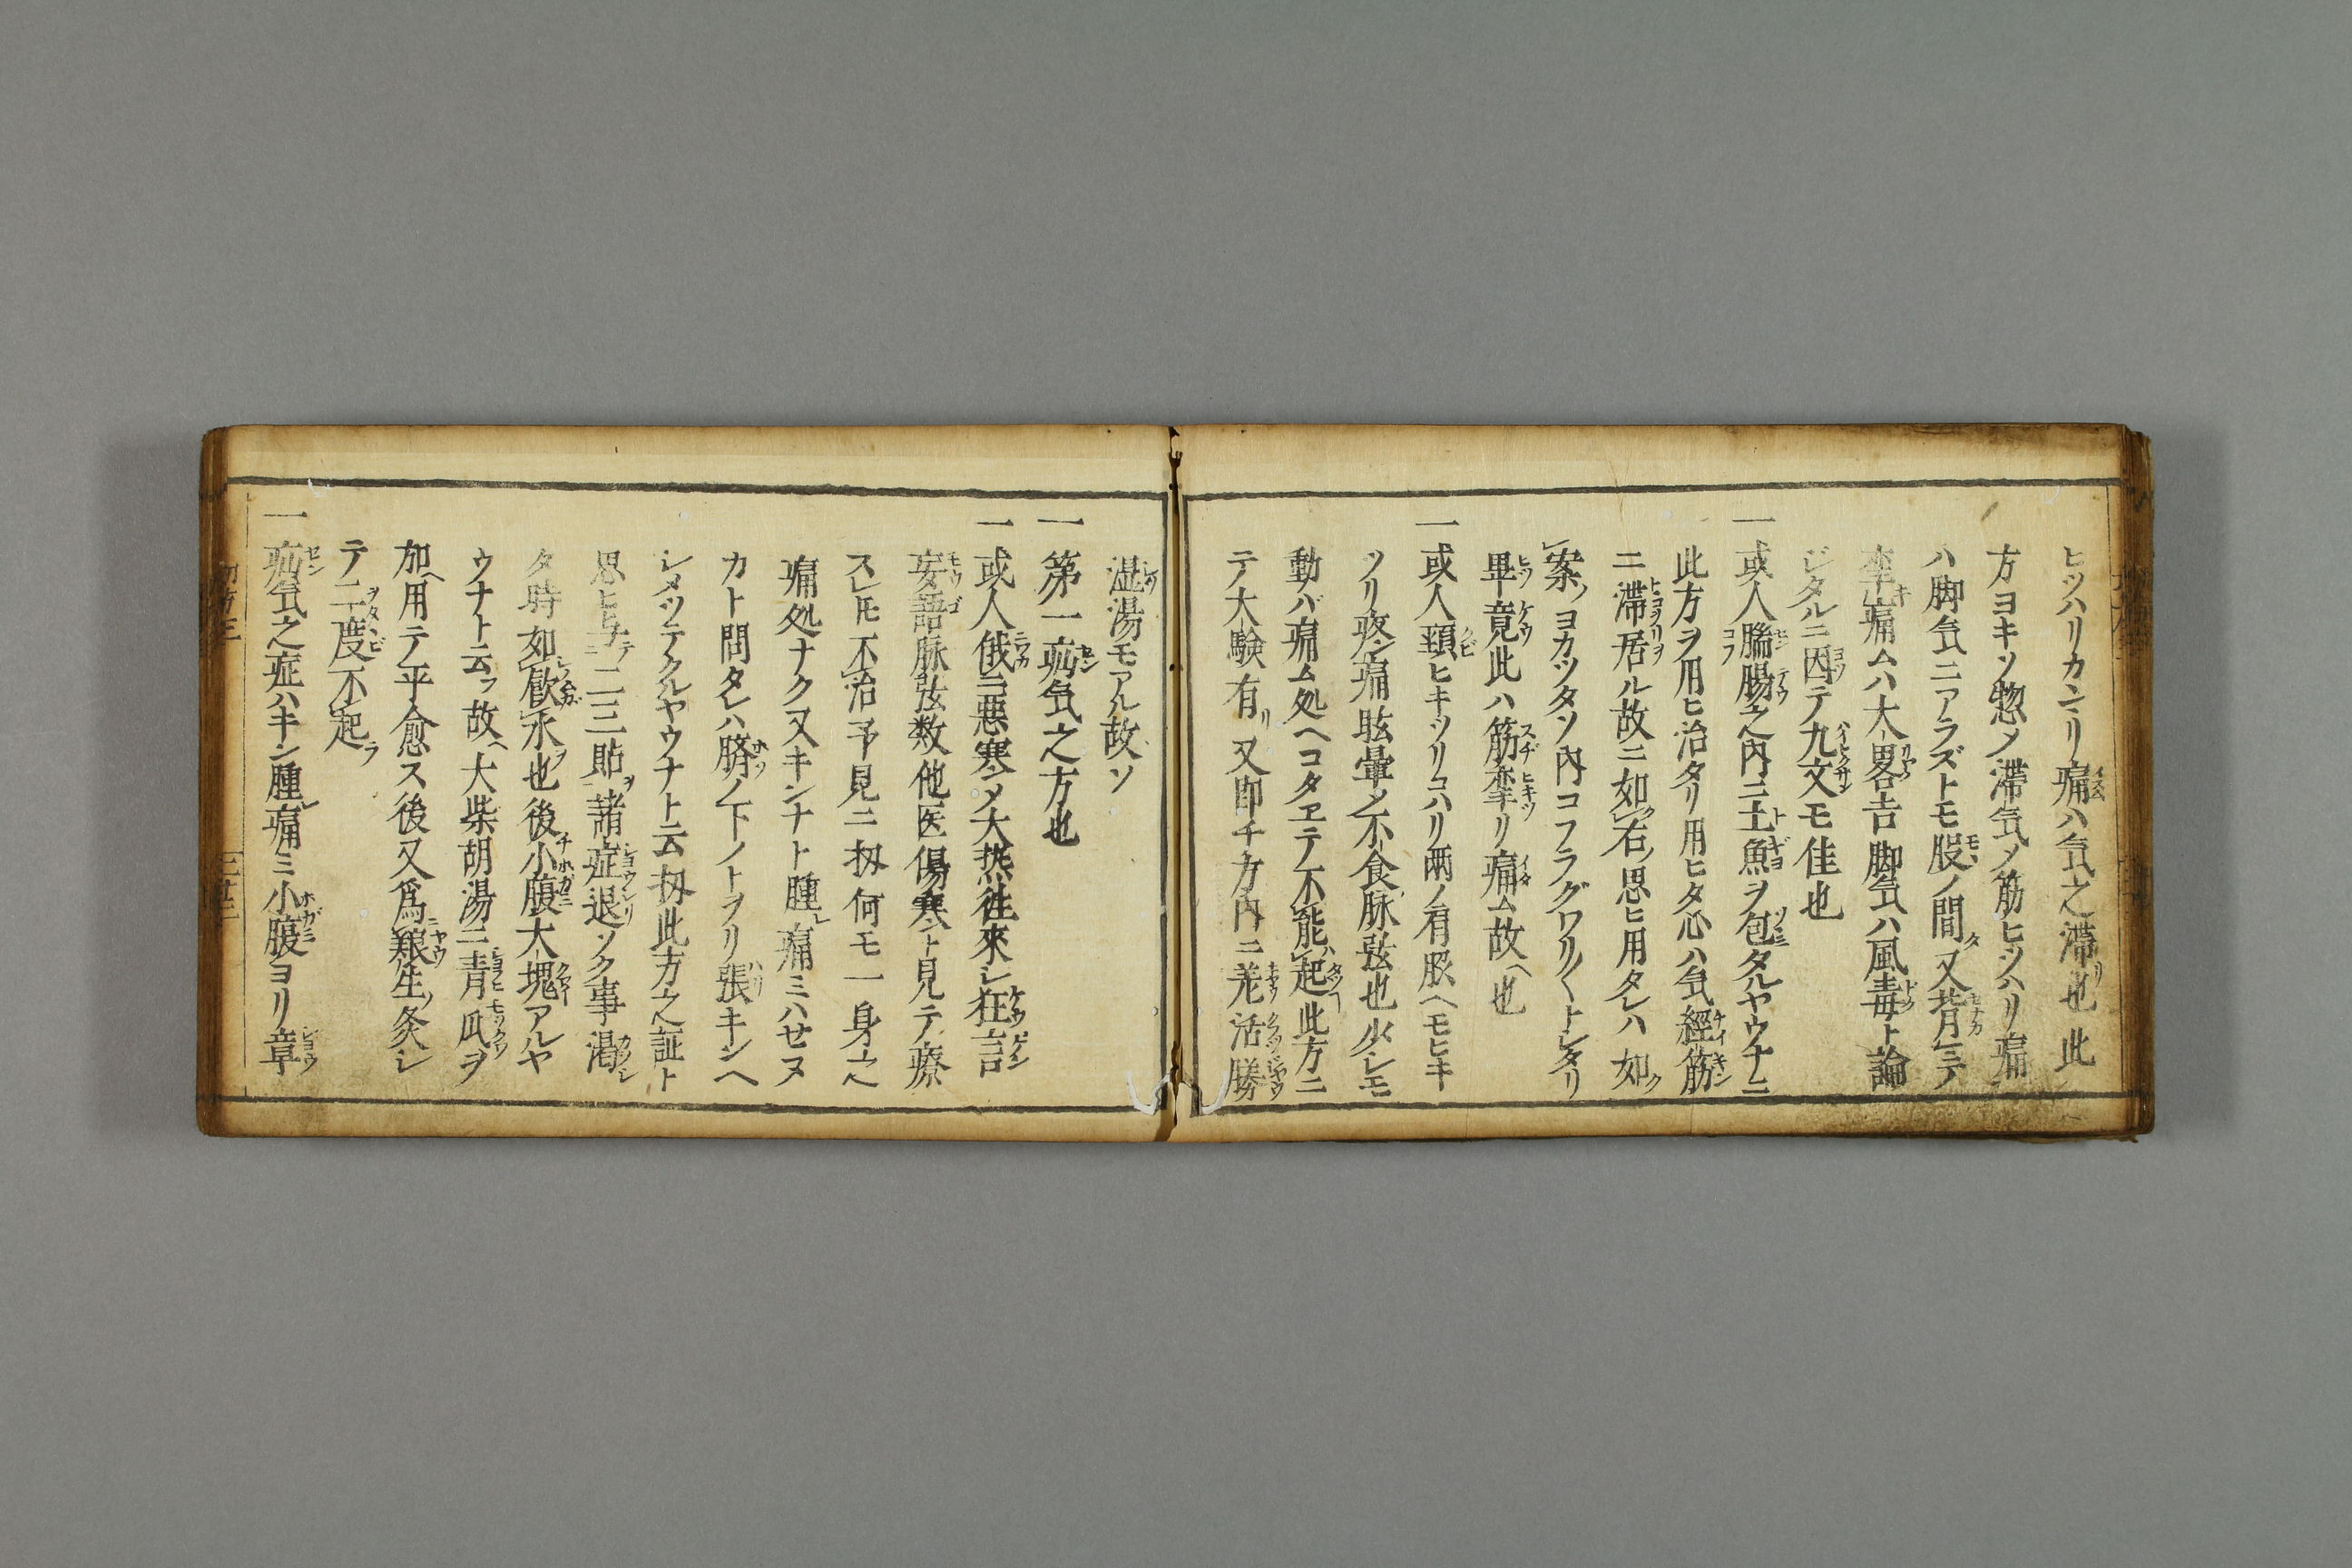 ヒツハリカンリ痛ハ気之滞也此
方ヨキソ惣〆滞気ノ筋ヒツハリ痛
ハ脚気ニアラズトモ股ノ間又背ニテ
牽痛ムハ大畧吉脚気ハ風毒ト論
ジタルニ因テ九文モ佳也
一或人腨腸之内ニ土魚ヲ包タルヤウナニ
此方ヲ用ヒ治タリ用ヒタ心ハ気經筋
ニ滞居ル故ニ如右ノ思ヒ用タレハ如
案ノヨカツタソ内コフラグワリ〳〵トシタリ
畢竟此ハ筋牽リ痛ム故也
一或人頚ヒキツリコハリ兩ノ有脵ヘモヒキ
ツリ疼痛眩暈〆不食脉弦也少シモ
動バ痛ム処ヘコタヱテ不能起此方ニ
テ大験有リ又即チ方内ニ羌活勝
湿湯モアル故ソ
一第一疝気之方也
一或人俄ニ悪寒〆大熱往來シ狂言
妄語脉弦数他医傷寒ト見テ療
スレ𪜈不治予見ニ扨何モ一身之
痛処ナク又キンナト腫レ痛ミハせヌ
カト問タレハ臍ノ下ノトヲリ張キンヘ
シメツテクルヤウナト云扨此方之証ト
思ヒ与テ二三貼諸症退ソク事渇
タ時如歠氷也後小腹大塊アルヤ
ウナト云フ故大柴胡湯ニ青瓜ヲ
加用テ平愈ス後又爲艱生灸シ
テ二度不起
一疝気之症ハキン腫レ痛ミ小腹ヨリ章